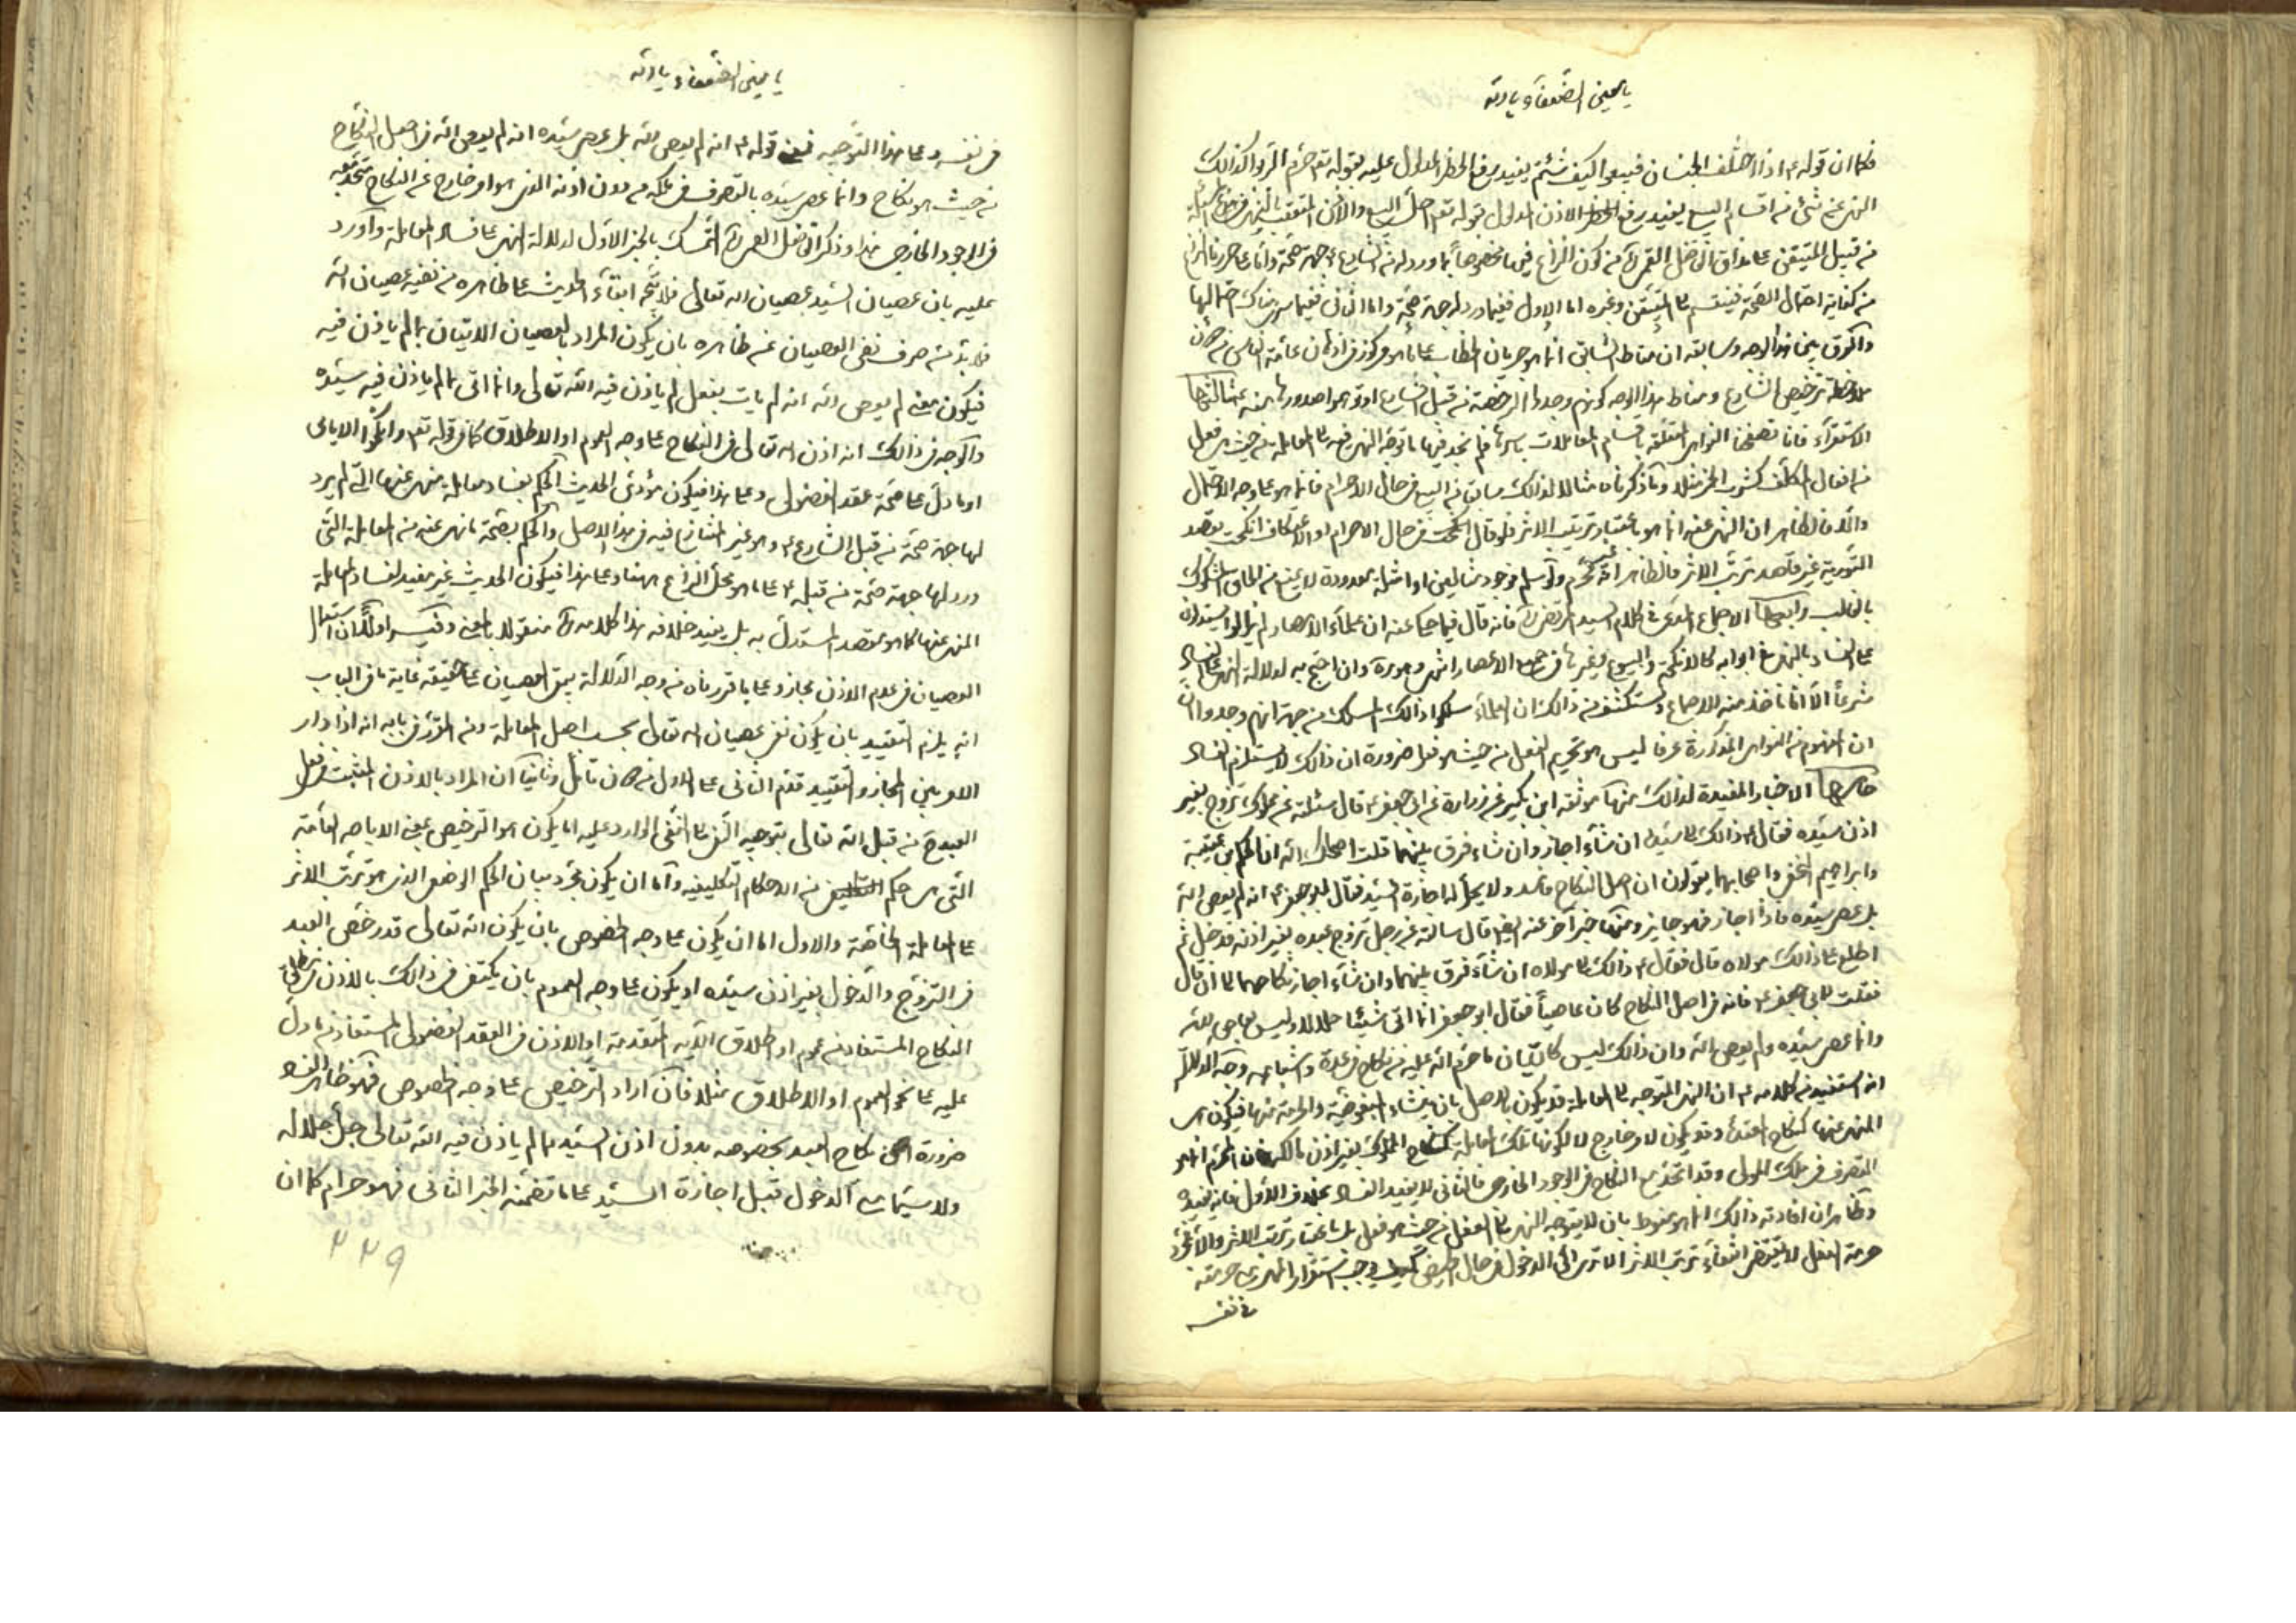 يا معين الضعفاء يا الله
فكما ان قوله ع اذا اختلف الجنسان فبيعوا كيف شئتم يفيد رفع الحظر المدلول عليه بقوله تع حرم الربوا كذالك
النهى عن شئ من اقسام البيع يفيد رفع الاذن المدلول بقوله تع احل الله البيع والاذن المتعقب بالنهى
من قبيل المتيقن على مذاق الفاضل القمى ره من كون النزاع فيما مخصوصا بما ورد له من الشارع ع جهة صحة واما على ما حررنا النزاع
من كفاية احتمال الصحة فينقسم الى المتيقن وغيره اما الاول ففيما ورد له جهة صحة واما الثانى ففيما سوى ذلك
والفرق بين هذا الوجه وسابقه ان مناط السابق انما هو جريان الخطاب على ما هو مركوز فى اذهان عامة الناس من
ملاحظة ترخيص الشارع ومناط هذا الوجه كونهم وجدوا الرخصة من قبل الشارع او توهموا صدورها منه ع ثالثها
الاستقراء فانا تصفحنا النواهى المتعلقة باقسام المعاملات باسرها فلم نجد فيها ما توجه النهى فيه الى المعاملة من حيث هى فعل
من افعال المكلف كشرب الخمر مثلا وما ذكرناه مثالا لذالك سابقا من البيع فى حال الاحرام فانما هو على وجه الاحتمال
والا فالظاهر ان النهى عنه انما هو باعتبار ترتيب الاثر فلو قال انكحت فى حال الاحرام او الاعتكاف انكحت بقصد
التورية غير قاصد ترتب الاثر فالظاهر انه غير محرم ولو سلم فوجود مثالين او امثلة معدودة لا يمنع من الحاق المشكوك
بالغالب رابعها الاجماع المدعى فى كلام السيد المرتضى ره فانه قال فيما حكى عنه ان علماء الامصار لم يزالوا يستدلون
على الفساد بالنهى فى ابوابه كالانكحة والبيوع وغيرها فى جميع الاعصار وان احتج به لدلالة النهى على الفساد
شرعا الا انا ناخذ منه الاجماع ونستكشف من ذالك ان العلماء سلكوا ذالك المسلك من جهة انهم وجدوا
ان المفهوم من النواهى المذكورة عرفا ليس هو تحريم الفعل من حيث هو فعل ضرورة ان ذالك لا يستلزم الفساد
خامسها الاخبار المفيدة لذالك منها موثقة ابن بكير عن زرارة عن ابى جعفر ع قال سئلته عن مملوك تزوج بغير
اذن سيده فقال ع ذالك الى سيده ان شاء اجاز وان شاء فرق بينهما قلت اصلحك الله ان الحكم بن عيينة
وابراهيم النخعى واصحابهما يقولون ان اصل النكاح فاسد ولا يحل له اجازة السيد فقال ابو جعفر ع انه لم يعص الله
بل عصى سيده فاذا اجاز فهو جايز ومنها خبر آخر عنه ايضا قال سالته عن رجل تزوج عبده بغير اذنه فدخل ثم
اطلع على ذالك مولاه قال فقال ع ذالك الى مولاه ان شاء فرق بينهما وان شاء اجاز نكاحهما الى ان قال
فقلت لابى جعفر ع فانه فى اصل النكاح كان عاصيا فقال ابو جعفر انما اتى شيئا حلالا وليس بعاص لله
وانما عصى سيده ولم يعص الله وان ذالك ليس كاتيان ما حرم الله عليه من نكاح فى عدة واشباهه وجه الدلالة
انه استفيد من كلامه ع ان النهى المتوجه الى المعاملة قد يكون بالاصل بان ينشاء المبغوضية والحرمة منها فيكون هى
المنهى عنها كنكاح المعتدة وقد يكون لامر خارج لا لكونها تلك المعاملة كنكاح المملوك بغير اذن مالكه فان المحرم انما هو
التصرف فى ملك المولى وقد اتحد مع النكاح فى الوجود الخارجى فالثانى لا يفيد الفساد بخلاف الاول فانه يفيده
وظاهر ان افادته ذالك انما هو منوط بان لا يتوجه النهى الى الفعل من حيث هو فعل بل باعتبار ترتب الاثر والا فمجرد
حرمة الفعل لا يقتضى انتفاء ترتب الاثر الا ترى الى الدخول فى حال الحيض يوجب استقرار المهر مع حرمته
فى نفسه
يا معين الضعفاء يا الله
فى نفسه وعلى هذا التوجيه فمعنى قوله ع انه لم يعص الله بل عصى سيده انه لم يعص الله فى اصل النكاح
من حيث هو نكاح وانما عصى سيده بالتصرف فى ملكه من دون اذنه الذى هو امر خارج عن النكاح متحد معه
فى الوجود الخارجى هذا وذكر الفاضل القمى ره التمسك بالخبر الاول لدلالة النهى على فساد المعاملة واورد
عليه بان عصيان السيد عصيان الله تعالى فلا يتجه ابقاء الحديث على ظاهره من نفيه عصيان الله
فلا بد من صرف نفى العصيان عن ظاهره بان يكون المراد بالعصيان الاتيان بما لم ياذن فيه
فيكون معنى لم يعص الله انه لم يات بفعل لم ياذن فيه الله تعالى وانما اتى بما لم ياذن فيه سيده
والوجه فى ذالك انه اذن الله تعالى فى النكاح على وجه العموم او الاطلاق كما فى قوله تع وانكحوا الايامى
او ما دل على صحة عقد الفضولى وعلى هذا فيكون مؤدى الحديث الحكم بفساد معاملة منهى عنها التى لم يرد
لها جهة صحة من قبل الشارع ع وهو غير المتنازع فيه فى هذا الاصل والحكم بصحة ما نهى عنه من المعاملة التى
ورد لها جهة صحة من قبله ع على ما هو محل النزاع هيهنا وعلى هذا فيكون الحديث غير مفيد لفساد المعاملة
المنهى عنها كما هو مقصد المستدل به بل يفيد خلافه هذا كلامه ره منقولا بالمعنى وفيه اولا ان استعمال
العصيان فى عدم الاذن مجاز وعلى ما قررناه من وجه الدلالة يبقى العصيان على حقيقته غاية ما فى الباب
انه يلزم التقييد بان يكون نفى عصيان الله تعالى بحسب اصل المعاملة ومن المقرر فى بابه انه اذا دار
الامر بين المجاز والتقييد قدم الثانى على الاول تامل وثانيا ان المراد بالاذن المثبت فى فعل
العبد من قبل الله تعالى بتوجيه النفى الى النفى الوارد عليه اما يكون هو الترخيص بمعنى الاباحه العامة
التى هى حكم من الاحكام التكليفيه واما ان يكون مجرد بيان الحكم الوضعى الذى هو ترتب الاثر
على المعاملة الخاصة والاول اما ان يكون على وجه الخصوص بان يكون الله تعالى قد رخص العبد
فى التزوج والدخول بغير اذن سيده او يكون على وجه العموم بان يكتفى فى ذالك بالاذن فى مطلق
النكاح المستفاد من عموم او اطلاق الآيه المتقدمة او الاذن فى العقد الفضولى المستفاد مما دل
عليه على نحو العموم او الاطلاق مثلا فان اراد الترخيص على وجه الخصوص فهو ظاهر الفساد
ضرورة ان نكاح العبد بخصوصه بدون اذن السيد مما لم ياذن فيه الله تعالى جل جلاله
ولا سيما مع الدخول قبل اجازة السيد على ما تضمنه الخبر الثانى فهو حرام كما ان
٢٢٩